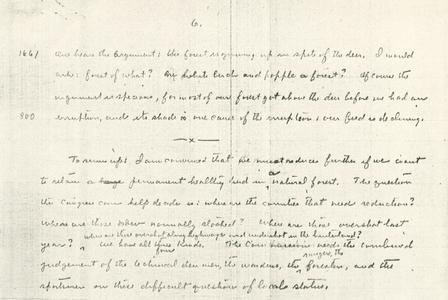 6.
1661 One hears the argument: the forest is growing up in spite of the deer. I would
ask: forest of what? Are white birch and popple a forest? Of course the
argument is specious, for most of our forest got above the deer before we had an
800 irruption, and its shade is one cause of the irruption: our feed is declining.
x
To sum up: I am convinced that we must reduce further if we want
to retain a permanent healthy herd in a natural forest. The question
the Congress can help decide is: where are the counties that need reduction?
Where are those normally stocked? Where are those overshot last
where are those overshot along highways and undershot in the hinterland?
year? We have all four kinds. The Commission needs the combined
judgement of the technical deer men, the wardens, the rangers, the foresters, and the
sportsmen on these difficult questions of local status.